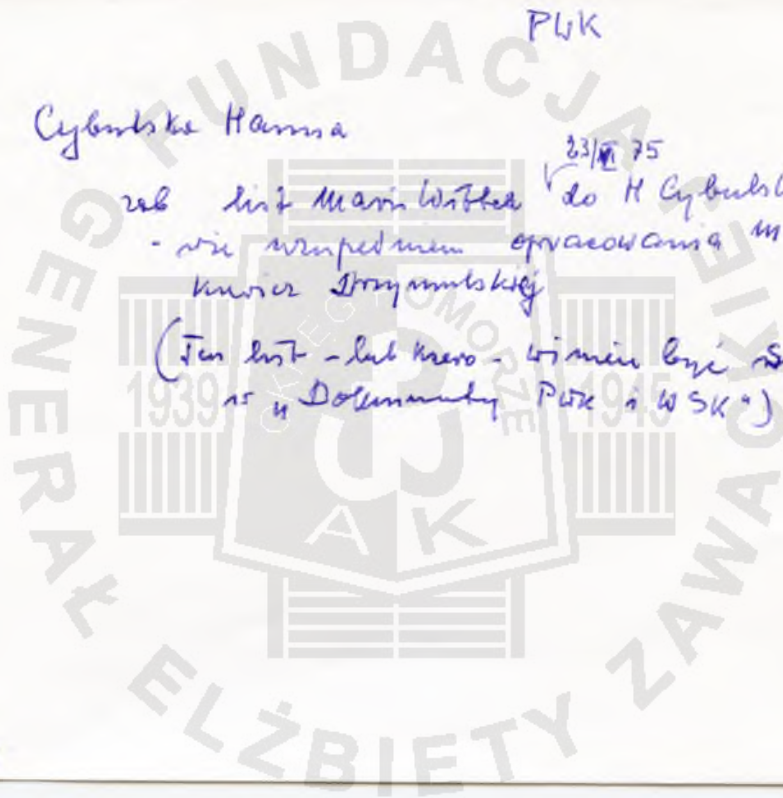 PWK
Cybulska Hanna
23/VI 75
zob list Marii Wittek do H Cybulsk
- nie uzupełnieniem opracowania M
Drzymulskiej
(Ten list - lub ksero - winien być
w "Dokumenty PWK i WSK")
FUNDACJA GENERAŁ ELŻBIETY ZAWACKIEJ
OKRĘG POMORZE
1939 1945
AK